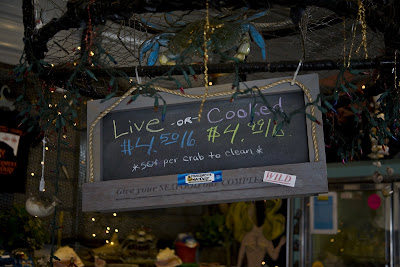 Live -or- Cooked
$4.50/lb $4.50/lb
*50¢ per crab to clean*
WILD
Give your SEAFOOD